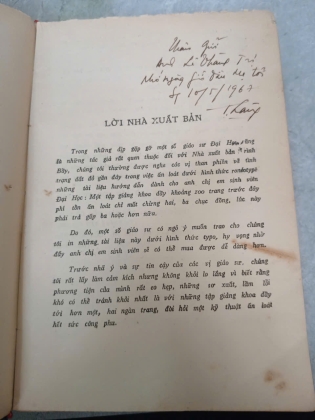 Thân gửi
anh Lê
10/5/1967
LỜI NHÀ XUẤT BẢN
Trong những dịp gặp gỡ một số giáo sư Đại Học cũng
là những tác giả rất quen thuộc đối với Nhà xuất bản
Bày, chúng tôi thường được nghe các vị than phiền về tình
trạng dắt đỏ gần đây trong việc ấn loát dưới hình thức ronéotypé
những tài liệu hướng dẫn dành cho anh chị em sinh viên
Đại Học: Một tập giảng khoa dầy khoảng 200 trang trước đây
phí tổn ấn loát chỉ mất chừng hai, ba chục đồng, lúc này
phải trả gấp ba hoặc hơn nữa.
Do đó, một số giáo sư có ngỏ ý muốn trao cho chúng
tôi in những tài liệu này dưới hình thức typo, hy vọng nhờ
đấy anh chị em sinh viên sẽ có thể mua được dễ dàng hơn.
Trước nhã ý và sự tin cậy của các vị giáo sư, chúng
tôi rất lấy làm cảm kích nhưng không khỏi lo lắng vì biết rằng
phương tiện của mình rất eo hẹp, những sơ xuất, lầm lỗi
khó có thể tránh khỏi nhất là với những tập giảng khoa dầy
tới hơn một, hai ngàn trang, đòi hỏi một kỹ thuật ấn loát
hết sức công phu.